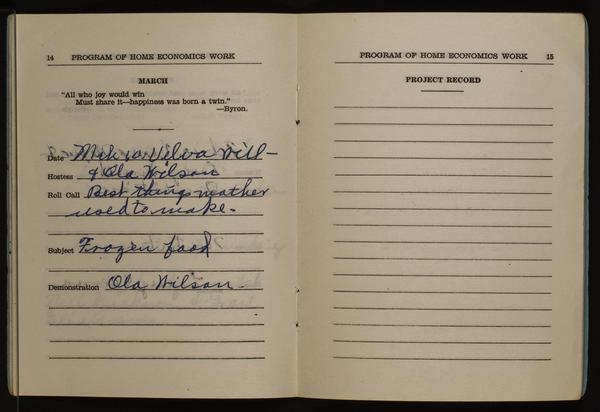 14 PROGRAM OF HOME ECONOMICS WORK
MARCH
"All who joy would win
Must share it—happiness was born a twin."
—Byron.
Date Mch 10. Velva Will—
Hostess & Ola Wilson
Roll Call Best things mother
used to make.
Subject Frozen food
Demonstration Ola Wilson
PROGRAM OF HOME ECONOMICS WORK 15
PROJECT RECORD